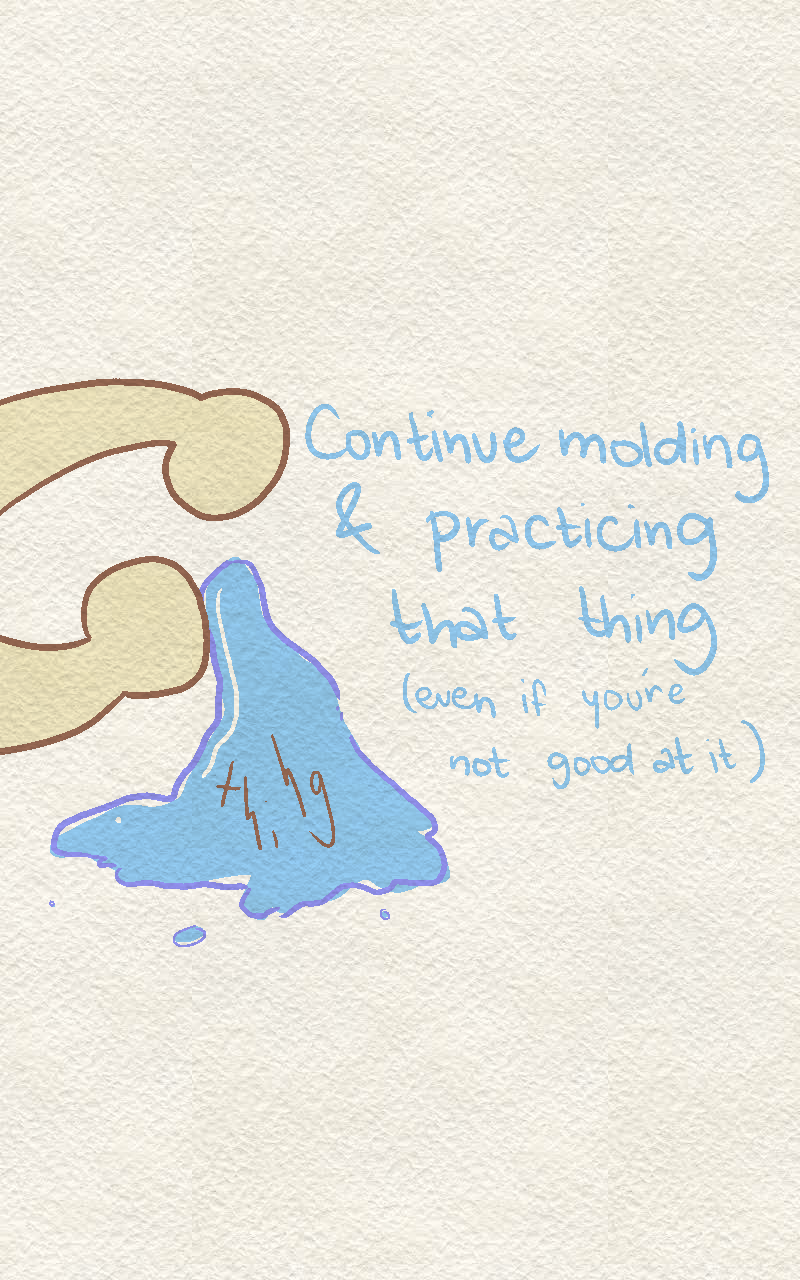 Continue molding
& practicing
that thing
(even if you're
not good at it)
thing